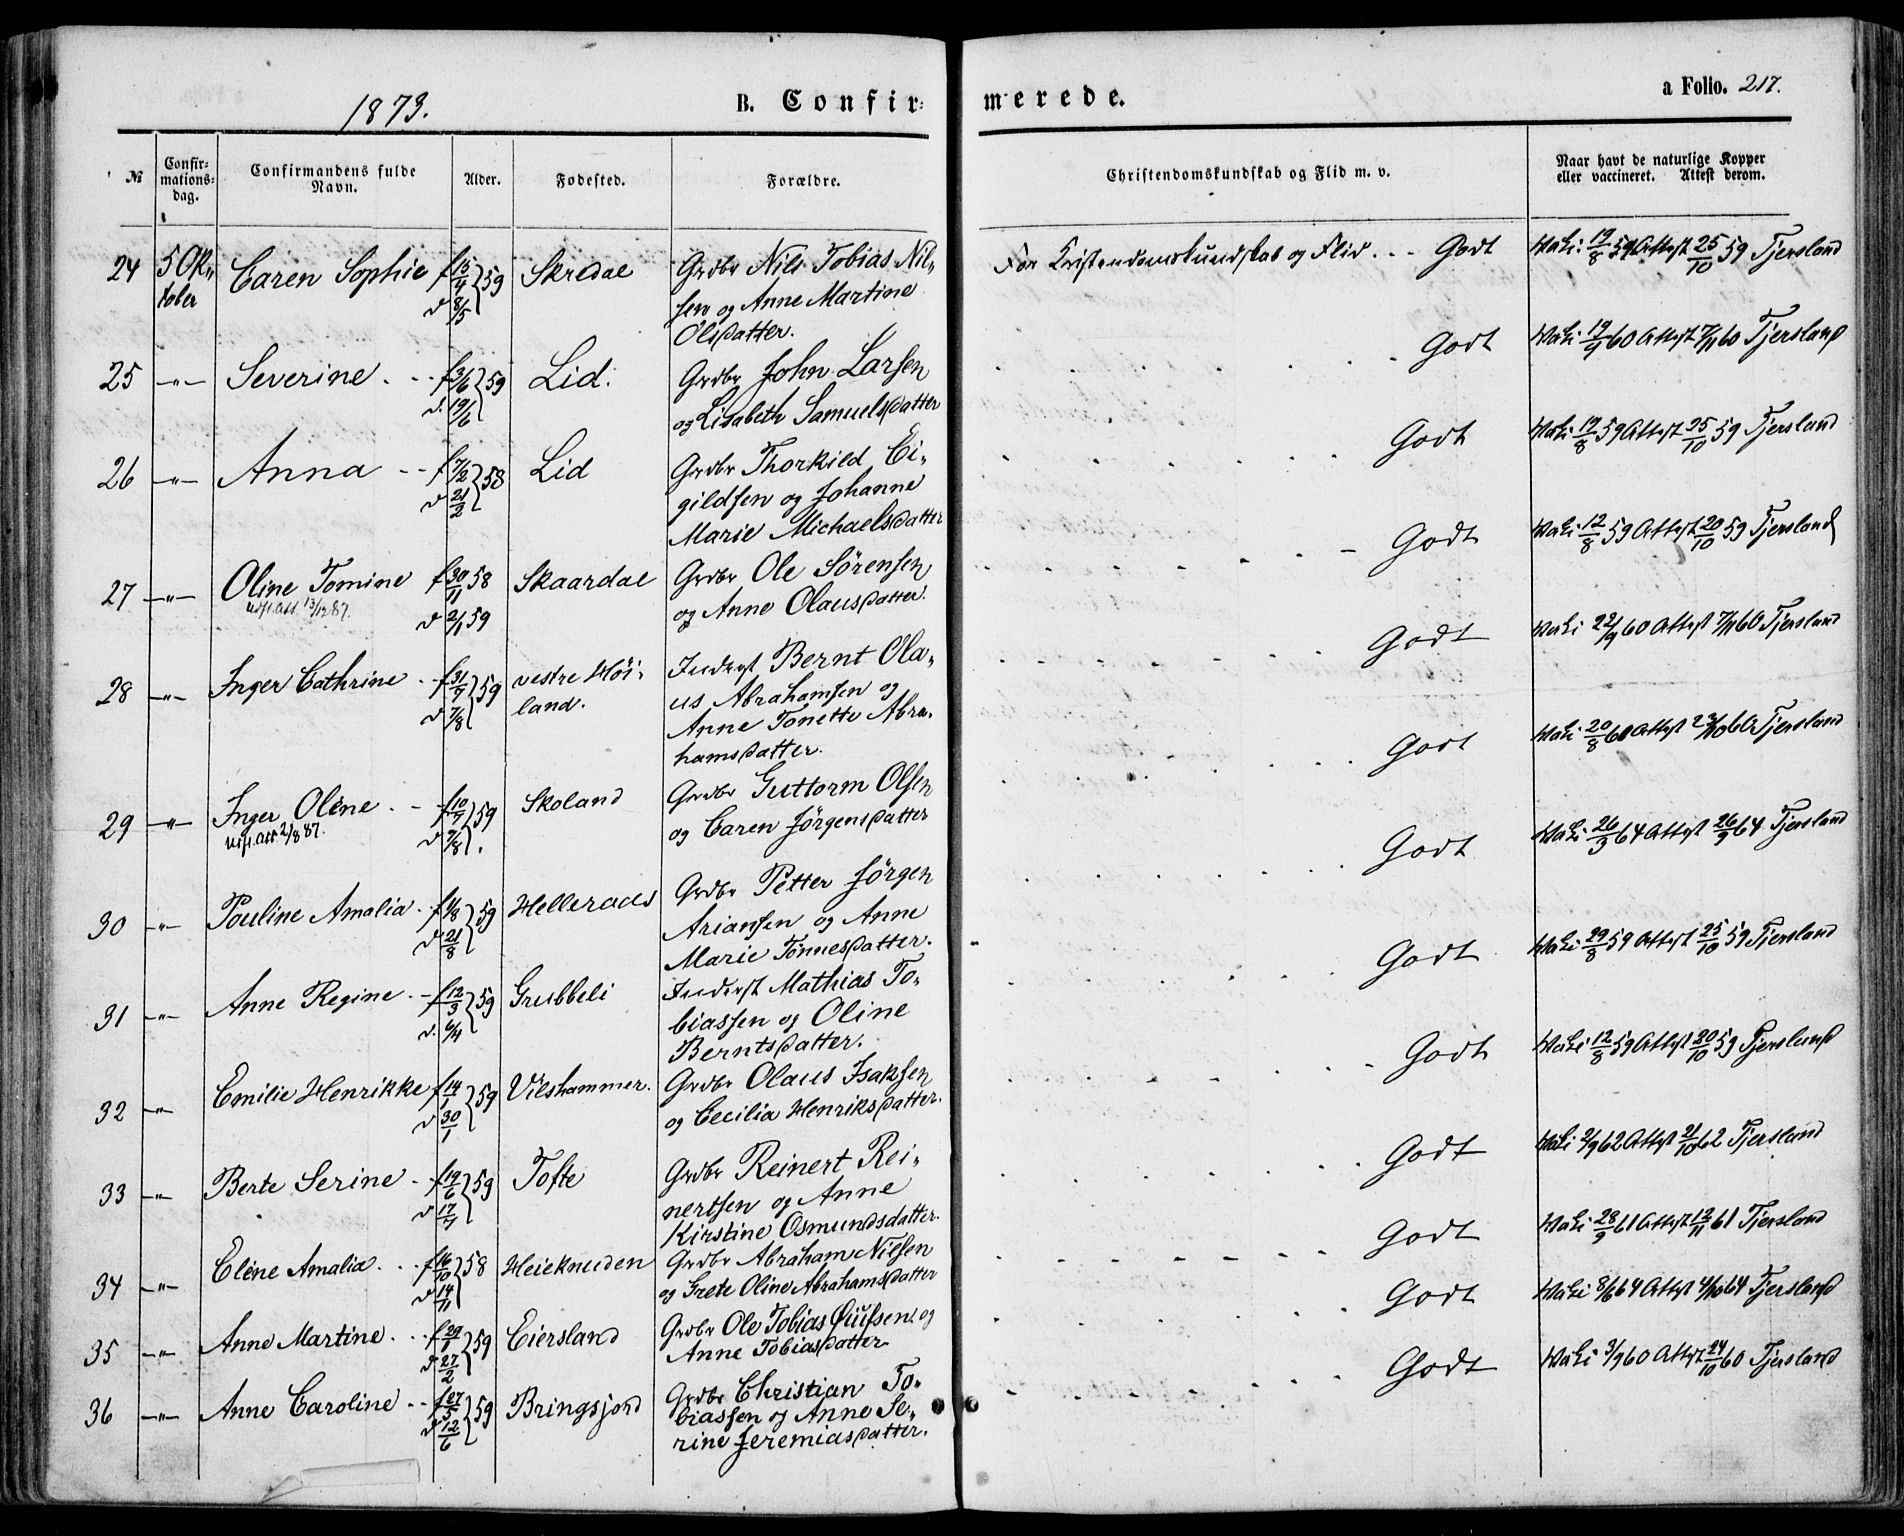 1873. B. Confir- merede. a Folio. 217.
№ Confirmations-dag. Confirmandens fulde Navn. Alder. Fødested. Forældre. Christendomskundskab og Flid m. v. Naar havt de naturlige Kopper eller vaccineret. Attest derom.
24 5 Oktober Caren Sophie f 15/4 d 8/5 }59 Skredal Grdbr Nils Tobias Nilsen og Anne Martine Olsdatter. For Kristendomskundskab og Flid . . . Godt Vak: 19/8 59 Attest 25/10 59 Tjersland
25 -"- Severine . . . f 3/6 d. 19/6 }59 Lid. Grdbr John Larsen og Lisabeth Samuelsdatter Godt Vak: 19/9 60 Attest 7/11 60 Tjersland
26 -"- Anna - - f 7/2 d 21/2 }58 Lid Grdbr Thorkild Eigildsen og Johanne Marie Michaelsdatter Godt Vak: 19/8 59 Attest 25/10 59 Tjersland
27 -"- Oline Tomine f 30/11 58 d 2/1 59 Skaardal Grdbr Ole Sørensen og Anne Olausdatter. Godt Vak: 12/8 59 Attest 20/10 59 Tjersland
udst. att. 13/12 87.
28 -"- Inger Cathrine . f 31/7 d 7/8 }59 vestre Høiland. Inderst Bernt Olaus Abrahamsen og Anne Tonette Abrahamsdatter. Godt Vak: 22/9 60 Attest 7/11 60 Tjersland
29 -"- Inger Oline . - f 10/7 d 7/8 }59 Skoland Grdbr Guttorm Olsen og Caren Jørgensdatter Godt Vak: 20/8 60 Attest 23/10 60 Tjersland
udst. att. 2/8 87.
30 -"- Pouline Amalia . f 1/8 d 21/8 }59 Helleraas Grdbr Petter Jørgen Ariansen og Anne Marie Tønnesdatter. Godt Vak: 26/3 64 Attest 26/9 64 Tjersland
31 -"- Anne Regine . - f 12/3 d. 6/4 }59 Grubbeli Inderst Mathias Tobiassen og Oline Berntsdatter. Godt Vak: 29/8 59 Attest 25/10 59 Tjersland
32 -"- Emilie Henrikke f 14/1 d 30/1 }59 Vilshammer. Grdbr Olaus Isaksen og Cecilia Henriksdatter. Godt Vak: 12/8 59 Attest 20/10 59 Tjersland
33 -"- Berte Serine . f 19/6 d 17/7 }59 Tofte Grdbr Reinert Reinertsen og Anne Kirstine Osmundsdatter. Godt Vak: 2/9 62 Attest 21/10 62 Tjersland
34 -"- Eline Amalia . . . f 16/10 d 14/11 }58 Heieknuden Grdbr Abraham Nilsen og Grete Oline Abrahamsdatter Godt Vak: 28/9 61 Attest 12/11 61 Tjersland
35 -"- Anne Martine . . . f 29/1 d 27/2 }59 Eiersland Grdbr Ole Tobias Ouisen og Anne Tobiasdatter Godt Vak: 8/6 64 Attest 4/10 64 Tjersland
36 -"- Anne Caroline . . f 27/5 d 12/6 }59 Bringsjord Grdbr Christian Tobiassen og Anne Serine Jeremiasdatter. Godt Vak: 3/9 60 Attest 24/10 60 Tjersland